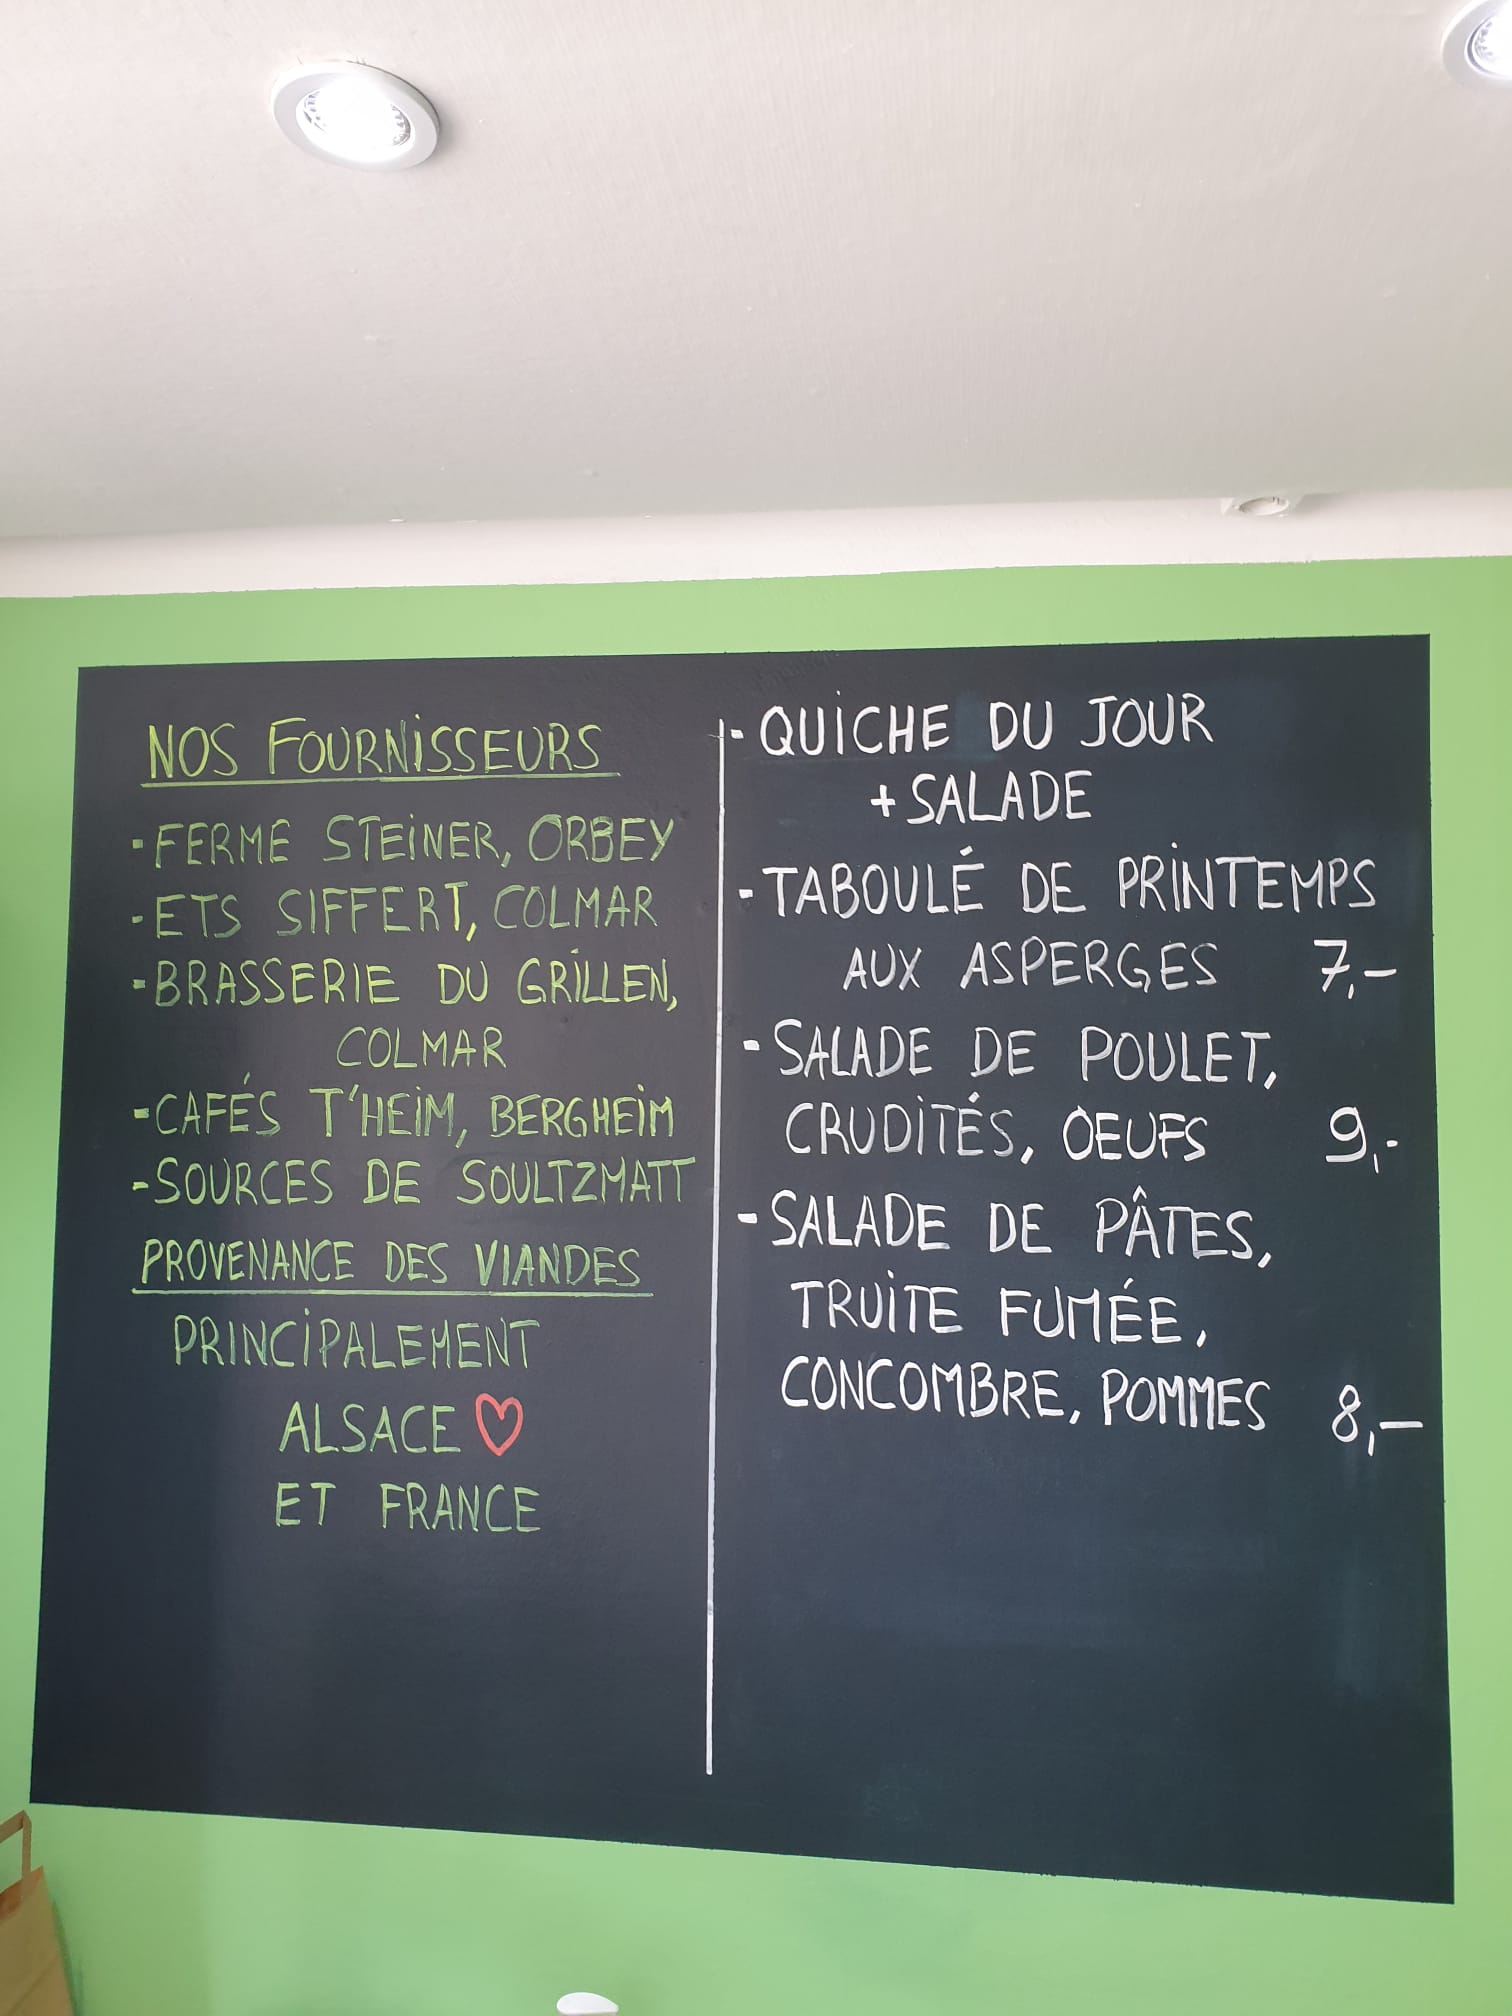 NOS FOURNISSEURS
- FERME STEINER, ORBEY
- ETS SIFFERT, COLMAR
- BRASSERIE DU GRILLEN,
COLMAR
- CAFÉS T'HEIM, BERGHEIM
- SOURCES DE SOULTZMATT
PROVENANCE DES VIANDES
PRINCIPALEMENT
ALSACE ♡
ET FRANCE
- QUICHE DU JOUR
+ SALADE
- TABOULÉ DE PRINTEMPS
AUX ASPERGES 7,-
- SALADE DE POULET,
CRUDITÉS, OEUFS 9,-
- SALADE DE PÂTES,
TRUITE FUMÉE,
CONCOMBRE, POMMES 8,-